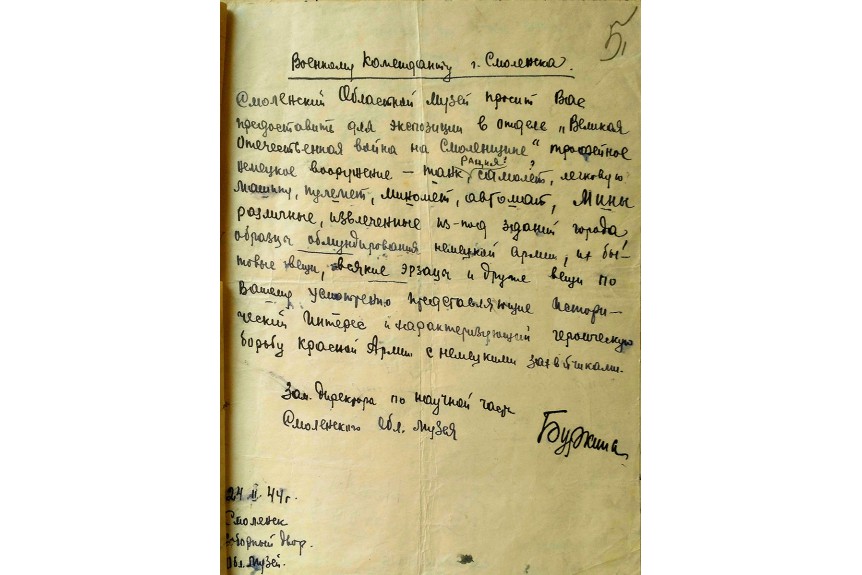 5
Военному Коменданту г. Смоленска.
Смоленский Областной Музей просит Вас
предоставить для экспозиции в отделе „Великая
Отечественная война на Смоленщине“ трофейное
рация,
немецкое вооружение – танк, самолет, легковую
машину, пулемет, миномет, автомат, мины
различные, извлеченные из-под зданий города
образцы обмундирования немецкой армии, их бы-
товые вещи, всякие эрзацы и другие вещи по
Вашему усмотрению представляющие истори-
ческий интерес и характеризующий героическую
борьбу Красной Армии с немецкими
Зам. Директора по научной части
Смоленского Обл. Музея
Буркина
24 II 44 г.
Смоленск
двор.
Обл. Музей.